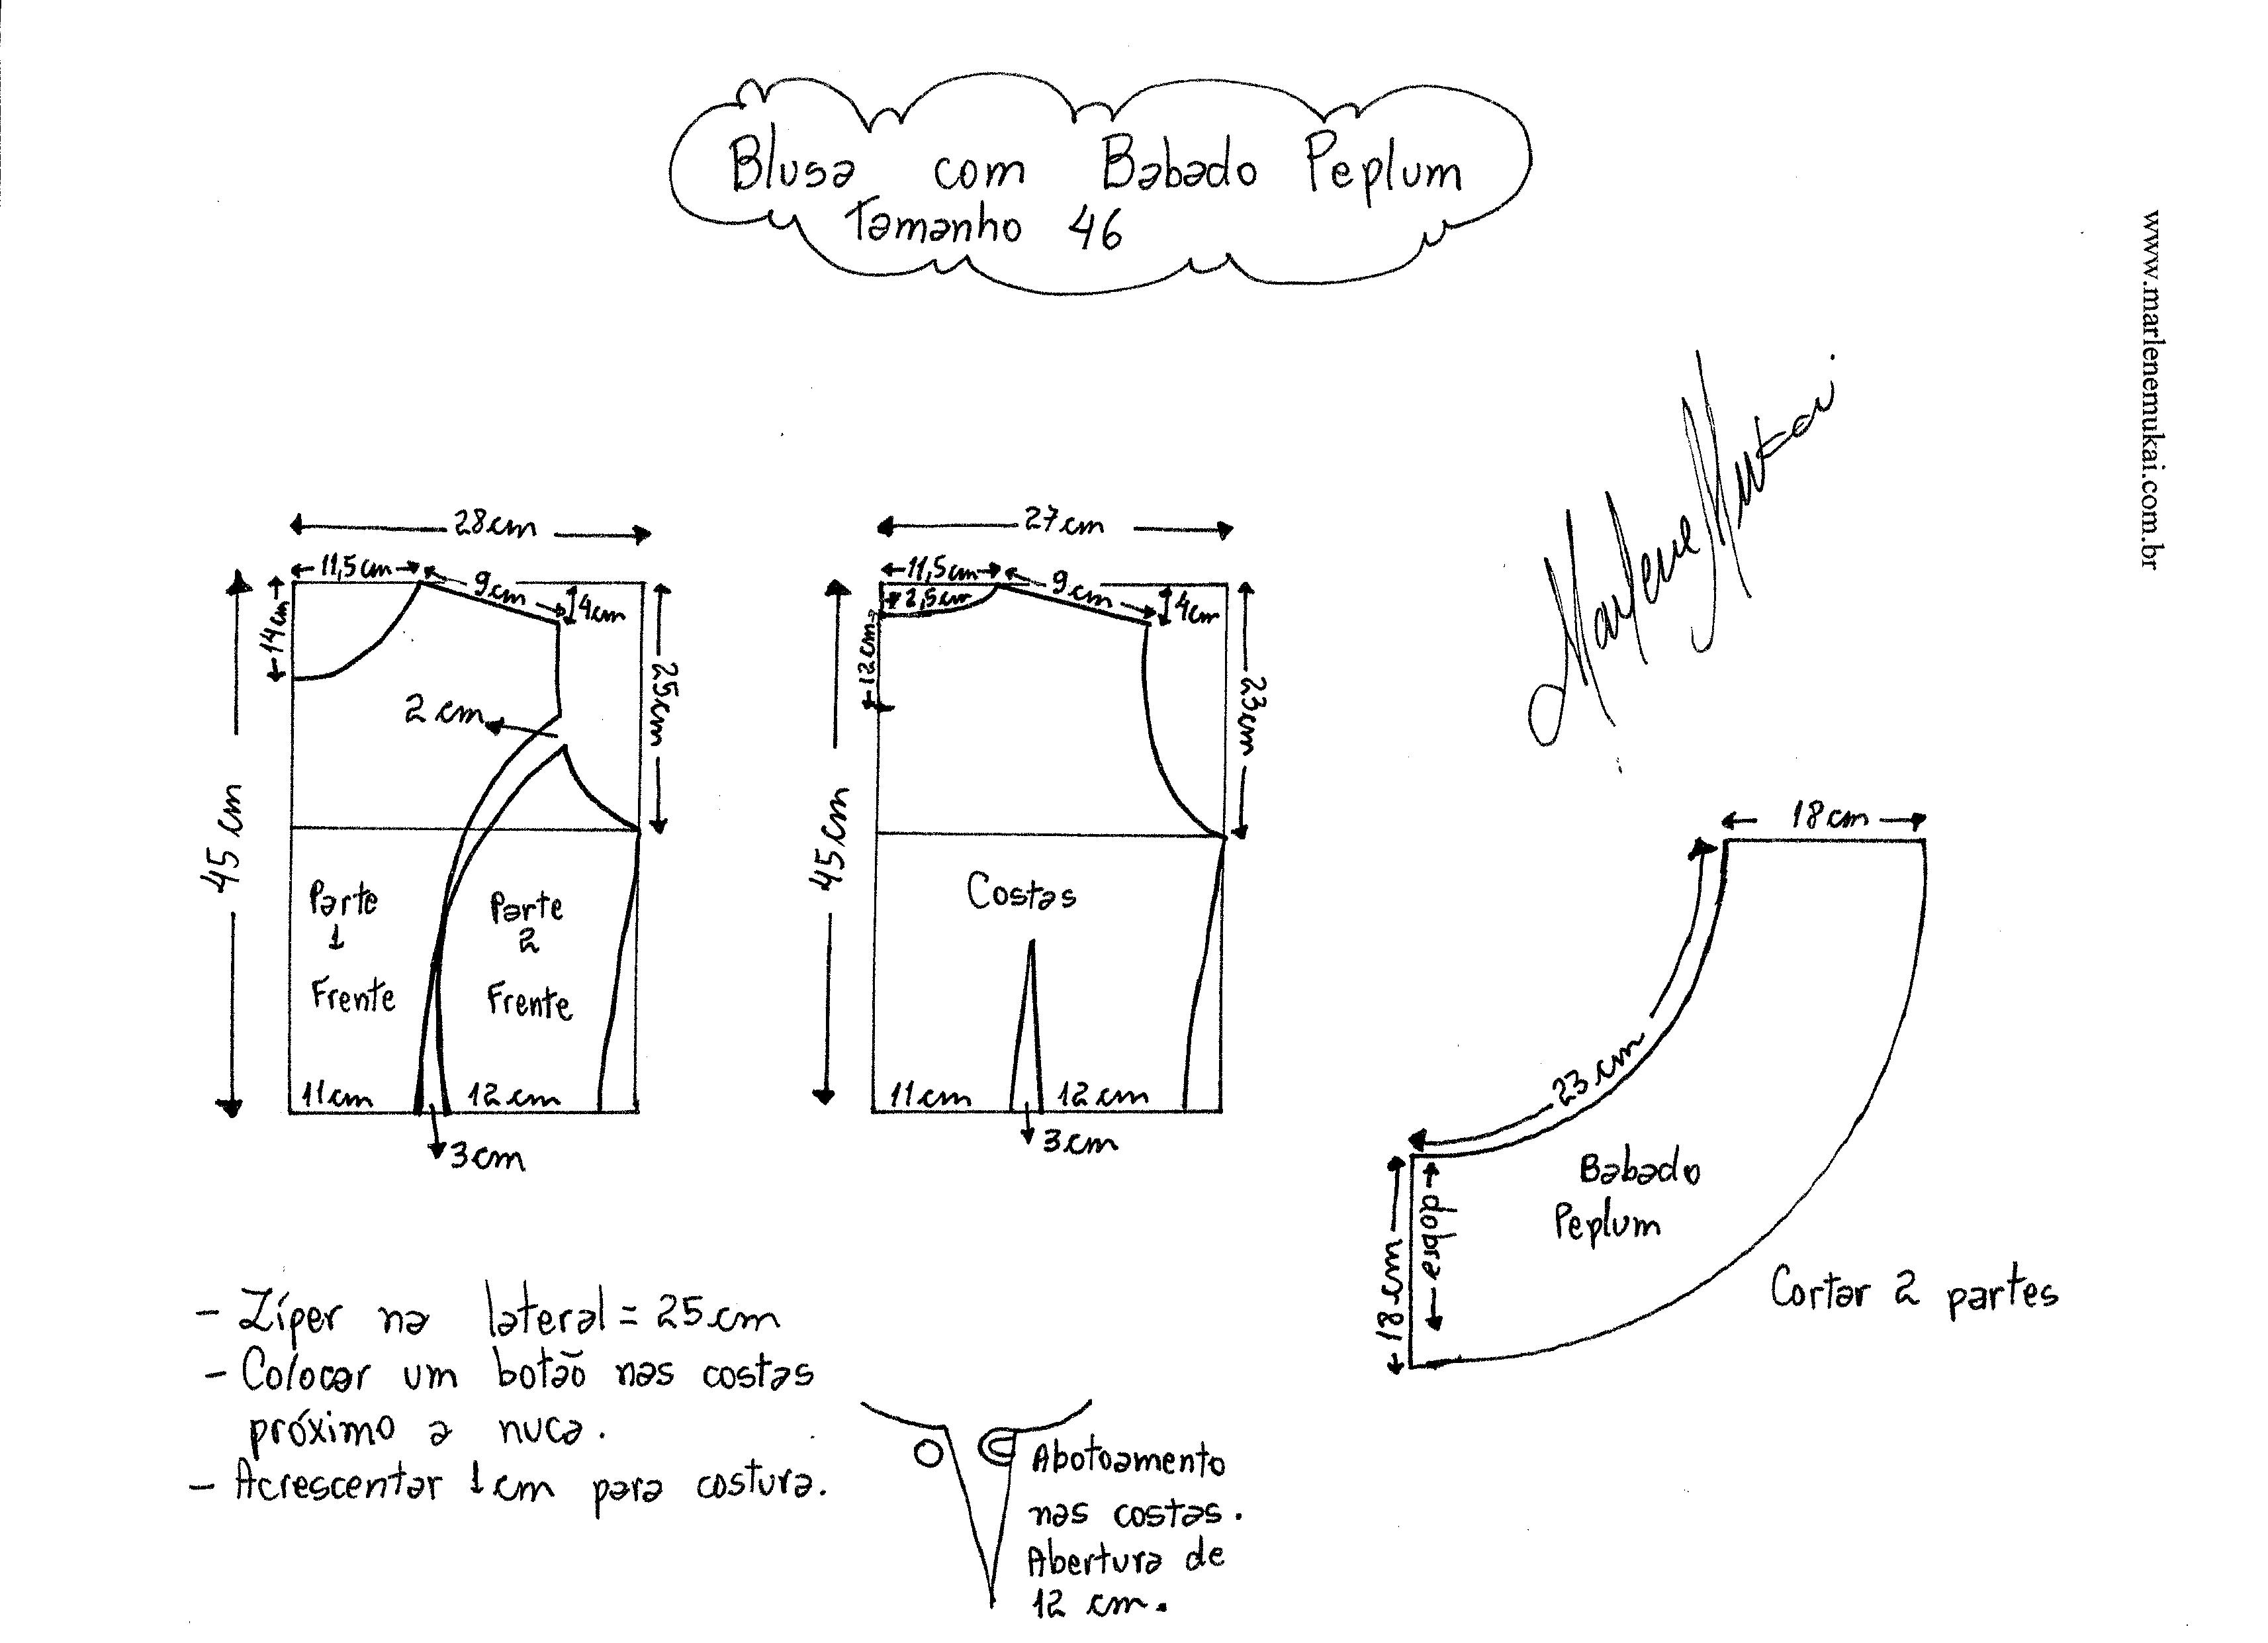 Blusa com Babado Peplum
Tamanho 46
www.marlenemukai.com.br
Marlene Mukai
28cm
11,5cm
9cm
4cm
14cm
25cm
2cm
45cm
Parte
1
Frente
Parte
2
Frente
11cm
12cm
3cm
27cm
11,5cm
9cm
4cm
2,5cm
12cm
23cm
45cm
Costas
11cm
12cm
3cm
18cm
23cm
dobra
18cm
Babado
Peplum
Cortar 2 partes
- Zíper na lateral = 25cm
- Colocar um botão nas costas
próximo a nuca.
- Acrescentar 1cm para costura.
Abotoamento
nas costas.
Abertura de
12 cm.